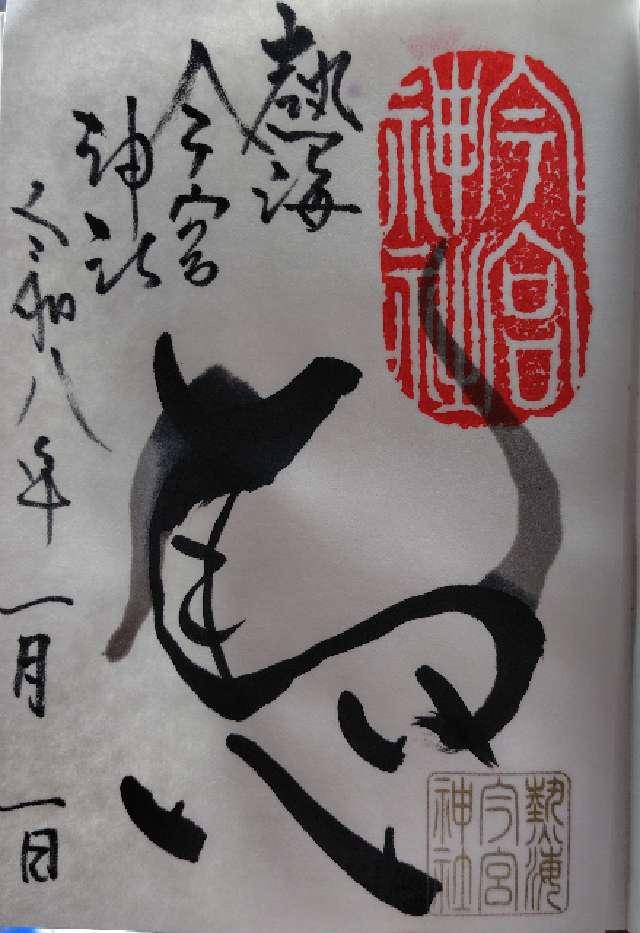 今宮
神社
熱海
今宮
神社
令和八年一月一日
馬
熱海
今宮
神社